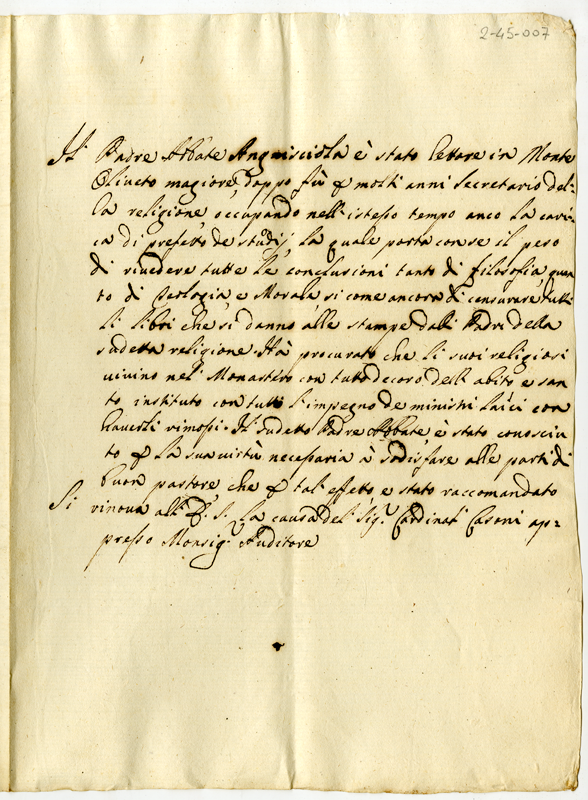 2-45-007
Il Padre Abbate Anguisciola è stato lettore in Monte
Oliueto magiore, doppo fù p molti anni Secretario del-
la religione, occupando nell'istesso tempo anco la cari-
ca di prefetto de studij, la quale porta con se il peso
di riuedere tutte le conclusioni tanto di filosofia, quan
to di Teologia, e Morale, si come ancora di censurare tutti
li libri che si danno alle stampe dalli Padri della
sudetta religione. Hà procurato che li suoi religiosi
uiuino nel Monastero con tutto decoro dell'abito e san
to instituto con tutto l'impegno de ministri laici con
hauerli rimossi. Il sudetto Padre Abbate è stato conosciu
to p la sua uirtù necessaria à sodisfare alle parti di
buon pastore che p tal' effetto e stato raccomandato
Si rinoua all' S. la causa del Sig.r Cardinal Casoni ap=
presso Monsig.r Auditore